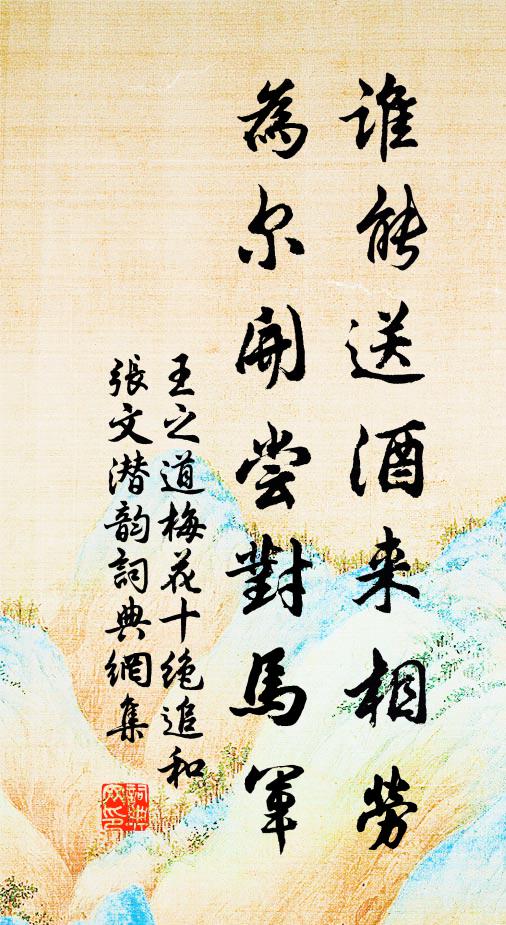 谁能送酒来相劳
為尔開尝對馬軍
王之道梅花十绝追和
張文潜韵詞典網集